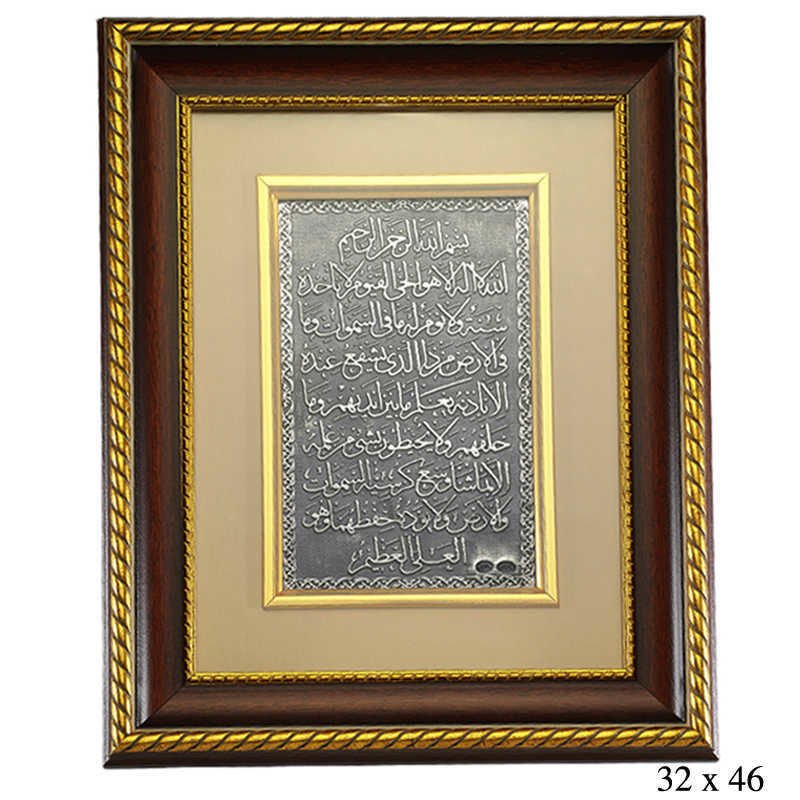 بسم الله الرحمن الرحيم
الله لا اله الا هو الحي القيوم لا تاخذه
سنة ولا نوم له ما في السموات وما
في الارض من ذا الذي يشفع عنده
الا باذنه يعلم ما بين ايديهم وما
خلفهم ولا يحيطون بشئ من علمه
الا بما شاء وسع كرسيه السموات
والارض ولا يؤده حفظهما وهو
العلي العظيم
32 x 46